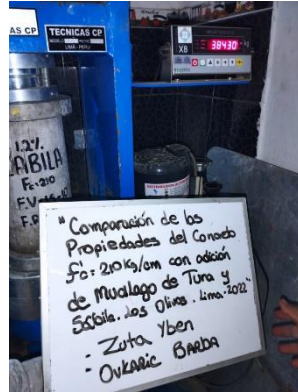 AS CP
TECNICAS CP
LIMA - PERU
X8
38430
kg
1.2%
ABILA
Fc=210
F.V
F.R
"Comparación de las
Propiedades del Concreto
f'c= 210kg/cm con adición
de Mucilago de Tuna y
Sábila. Los Olivos. Lima. 2022"
- Zuta Yben
- OVKARIC BARBA